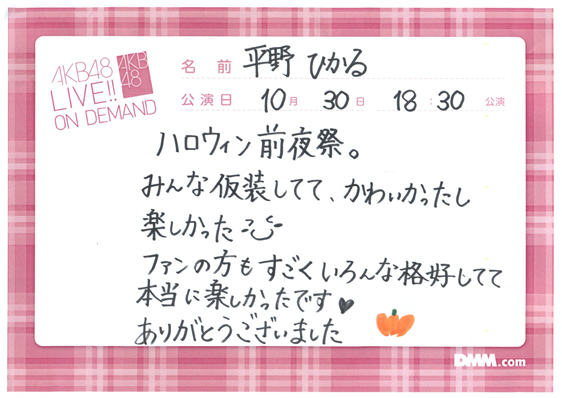 AKB48
LIVE!!
ON DEMAND
AKB
48
名前 平野 ひかる
公演日 10月 30日 18:30 公演
ハロウィン前夜祭。
みんな仮装してて、かわいかったし
楽しかった
ファンの方もすごくいろんな格好してて
本当に楽しかったです♥
ありがとうございました
DMM.com